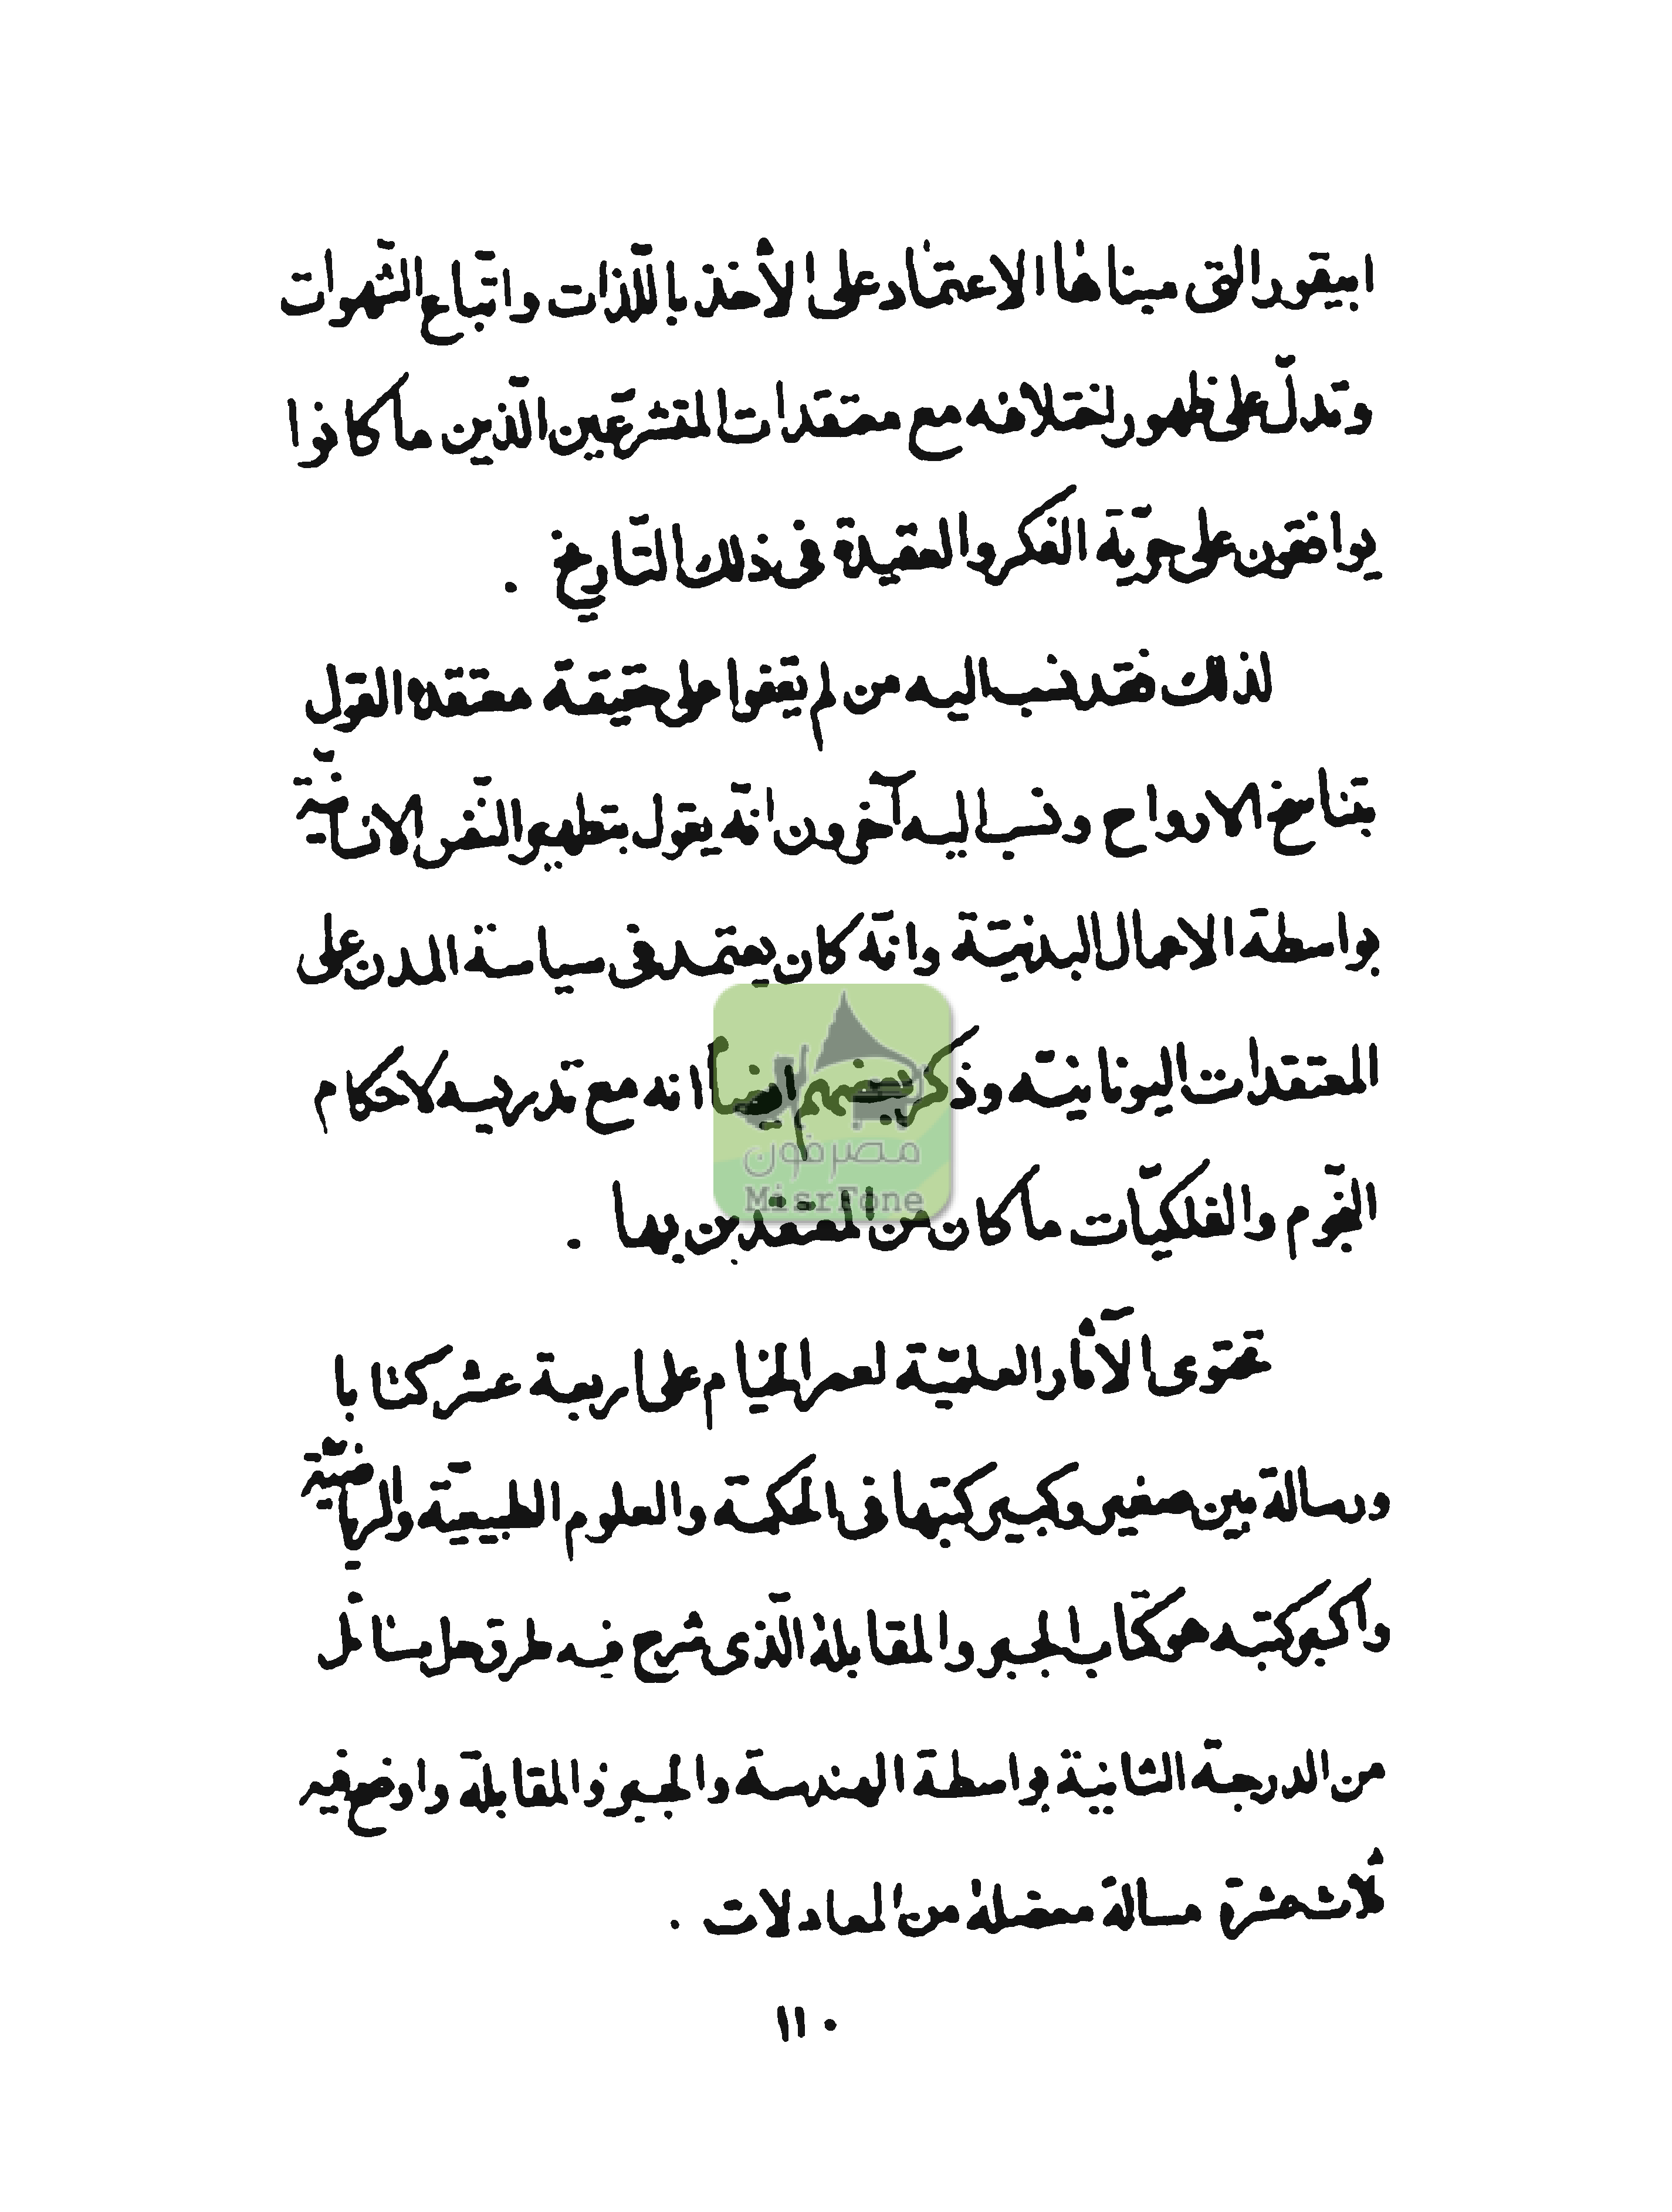 ابيقور التى مبناها الاعتماد على الأخذ باللّذات واتّباع الشّهوات
وتدلّ على ظهور اختلافه مع معتقدات المتشرّعين الّذين ما كانوا
يوافقون على حرّية الفكر والعقيدة فى ذلك التّاريخ .
لذلك فقد نسب اليه من لم يقفوا على حقيقة معتقده القول
بتناسخ الارواح ونسب اليه آخرون انّه يقول بتطهير النّفس الانسانيّة
بواسطة الاعمال البدنيّة وانّه كان يعتمد فى سياسة المدن على
المعتقدات اليونانيّه وذكر بعضهم ايضاً انه مع تدريسه لاحكام
النّجوم والفلكيّات ما كان من المعتقدين بها .
تحتوى الآثار العلميّة لعمر الخيّام على اربعة عشر كتابا
ورسالة بين صغير وكبير كتبها فى الحكمة والعلوم الطّبيعيّة والرّياضيّة
واكبر كتبه هو كتاب الجبر والمقابلة الّذى شرح فيه طرق حل مسائل
من الدرجة الثانية بواسطة الهندسة والجبر والمقابلة واوضح فيه
ثلاث عشرة مسالة معضلة من المعادلات .
١١٠
مصرفون
MisrFone